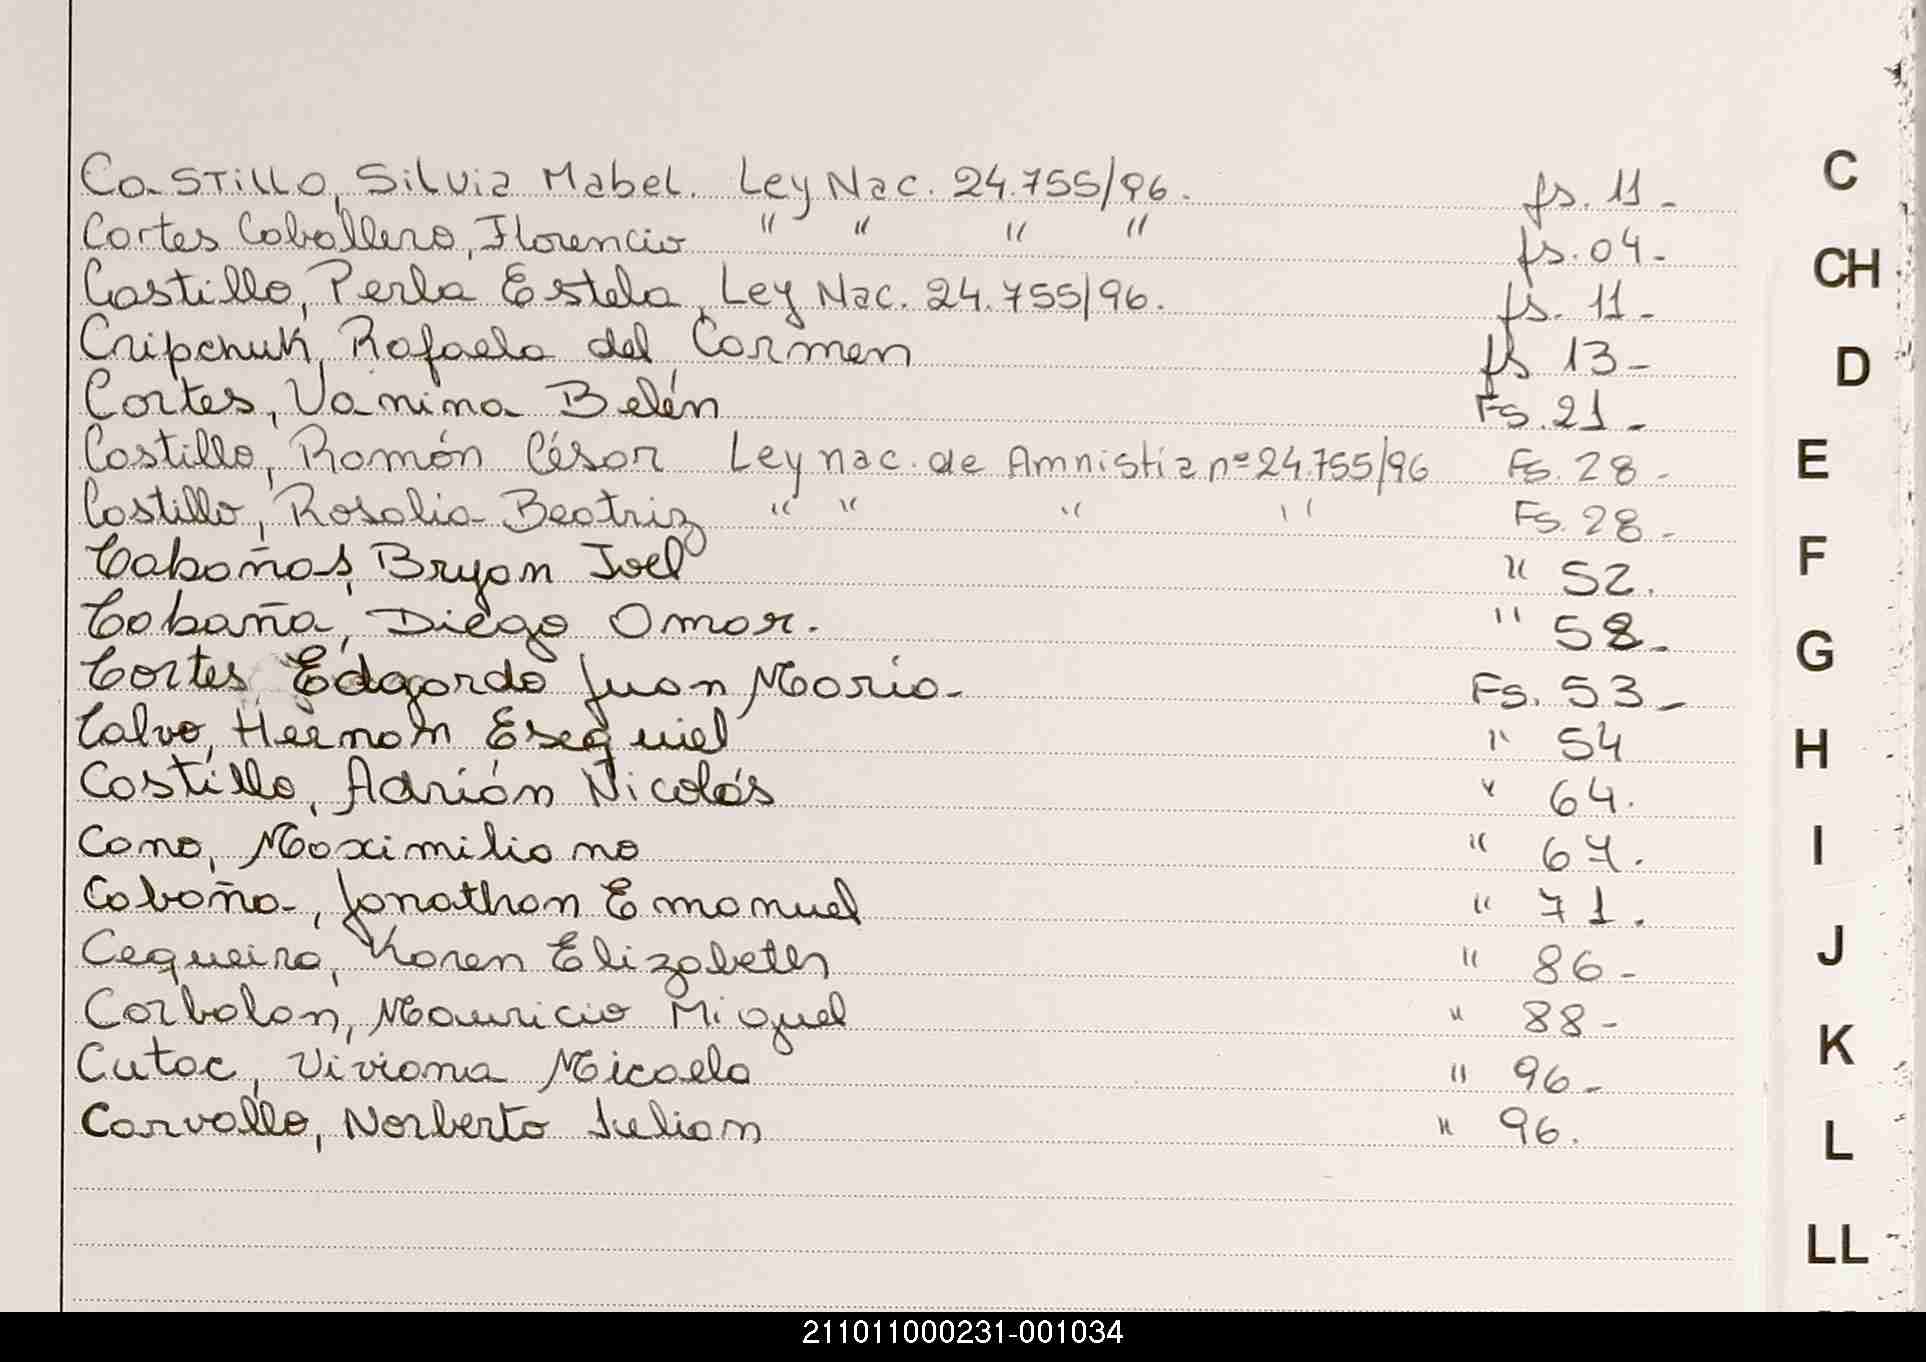 Castillo, Silvia Mabel. Ley Nac. 24.755/96. fs. 11-
Cortes Caballero, Florencio " " " " fs. 04-
Castillo, Perla Estela, Ley Nac. 24.755/96. fs. 11-
Cripchuk, Rafaela del Carmen fs 13-
Cortes, Vanina Belén Fs. 21-
Castillo, Ramón César Ley nac. de Amnistia nº 24.755/96 Fs. 28-
Castillo, Rosalia Beatriz " " " " Fs. 28-
Cabañas, Bryan Joel " 52.
Cabaña, Diego Omar. " 58-
Cortes, Edgardo Juan Mario- Fs. 53-
Calvo, Hernan Esequiel " 54
Castillo, Adrián Nicolás " 64.
Cano, Maximiliano " 67.
Cabaña, Jonathan Emanuel " 71.
Cequeira, Karen Elizabeth " 86-
Corbalan, Mauricio Miguel " 88-
Cutac, Viviana Micaela " 96-
Carvallo, Norberto Julian " 96.
C
CH
D
E
F
G
H
I
J
K
L
LL
211011000231-001034